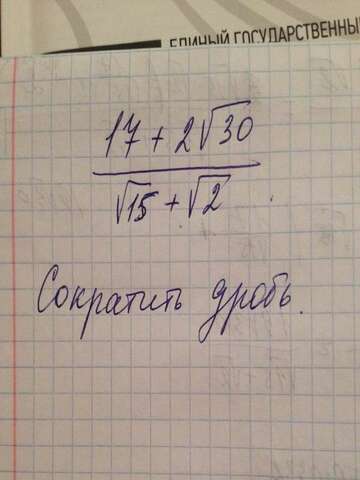 ЕДИНЫЙ ГОСУДАРСТВЕННЫ
17 + 2√30
√15 + √2
Сократить дробь.